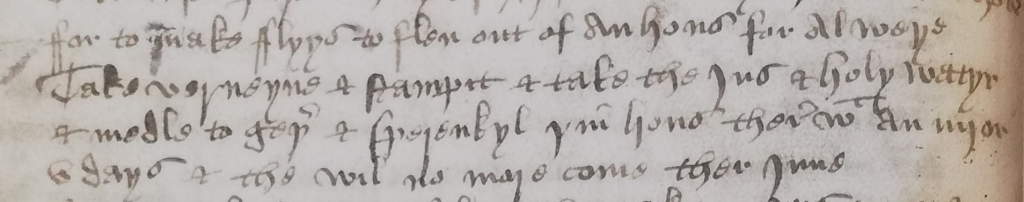 ffor to make fflyys to fleu out of An hous for Al weye
Take verueyne & stamp it & take the Jus & holy watyr
& medle to geþ' & spreienkyl yin hous ther' wt An iiij or
v days & the wil no more come ther Inne